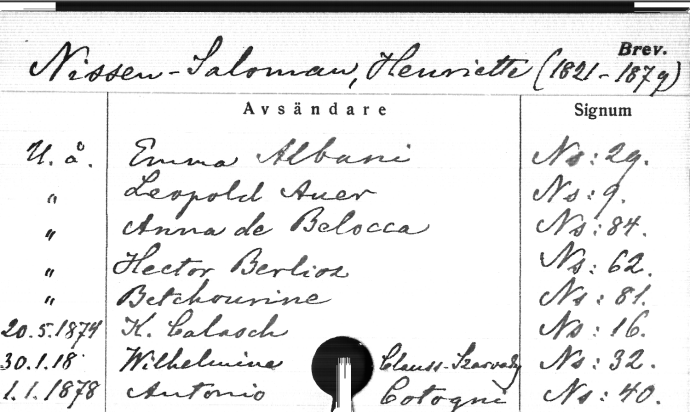 Brev.
Nissen-Saloman, Henriette (1821-1879)
Avsändare Signum
U. å. Emma Albani Ns: 29.
" Leopold Auer Ns: 9.
" Anna de Belocca Ns: 84.
" Hector Berlioz Ns: 62.
" Betchourine Ns: 81.
20.5.1874 K. Ns: 16.
30.1.18 Wilhelmine Clauss-Szarvady Ns: 32.
1.1.1878 Antonio Cotogni Ns: 40.